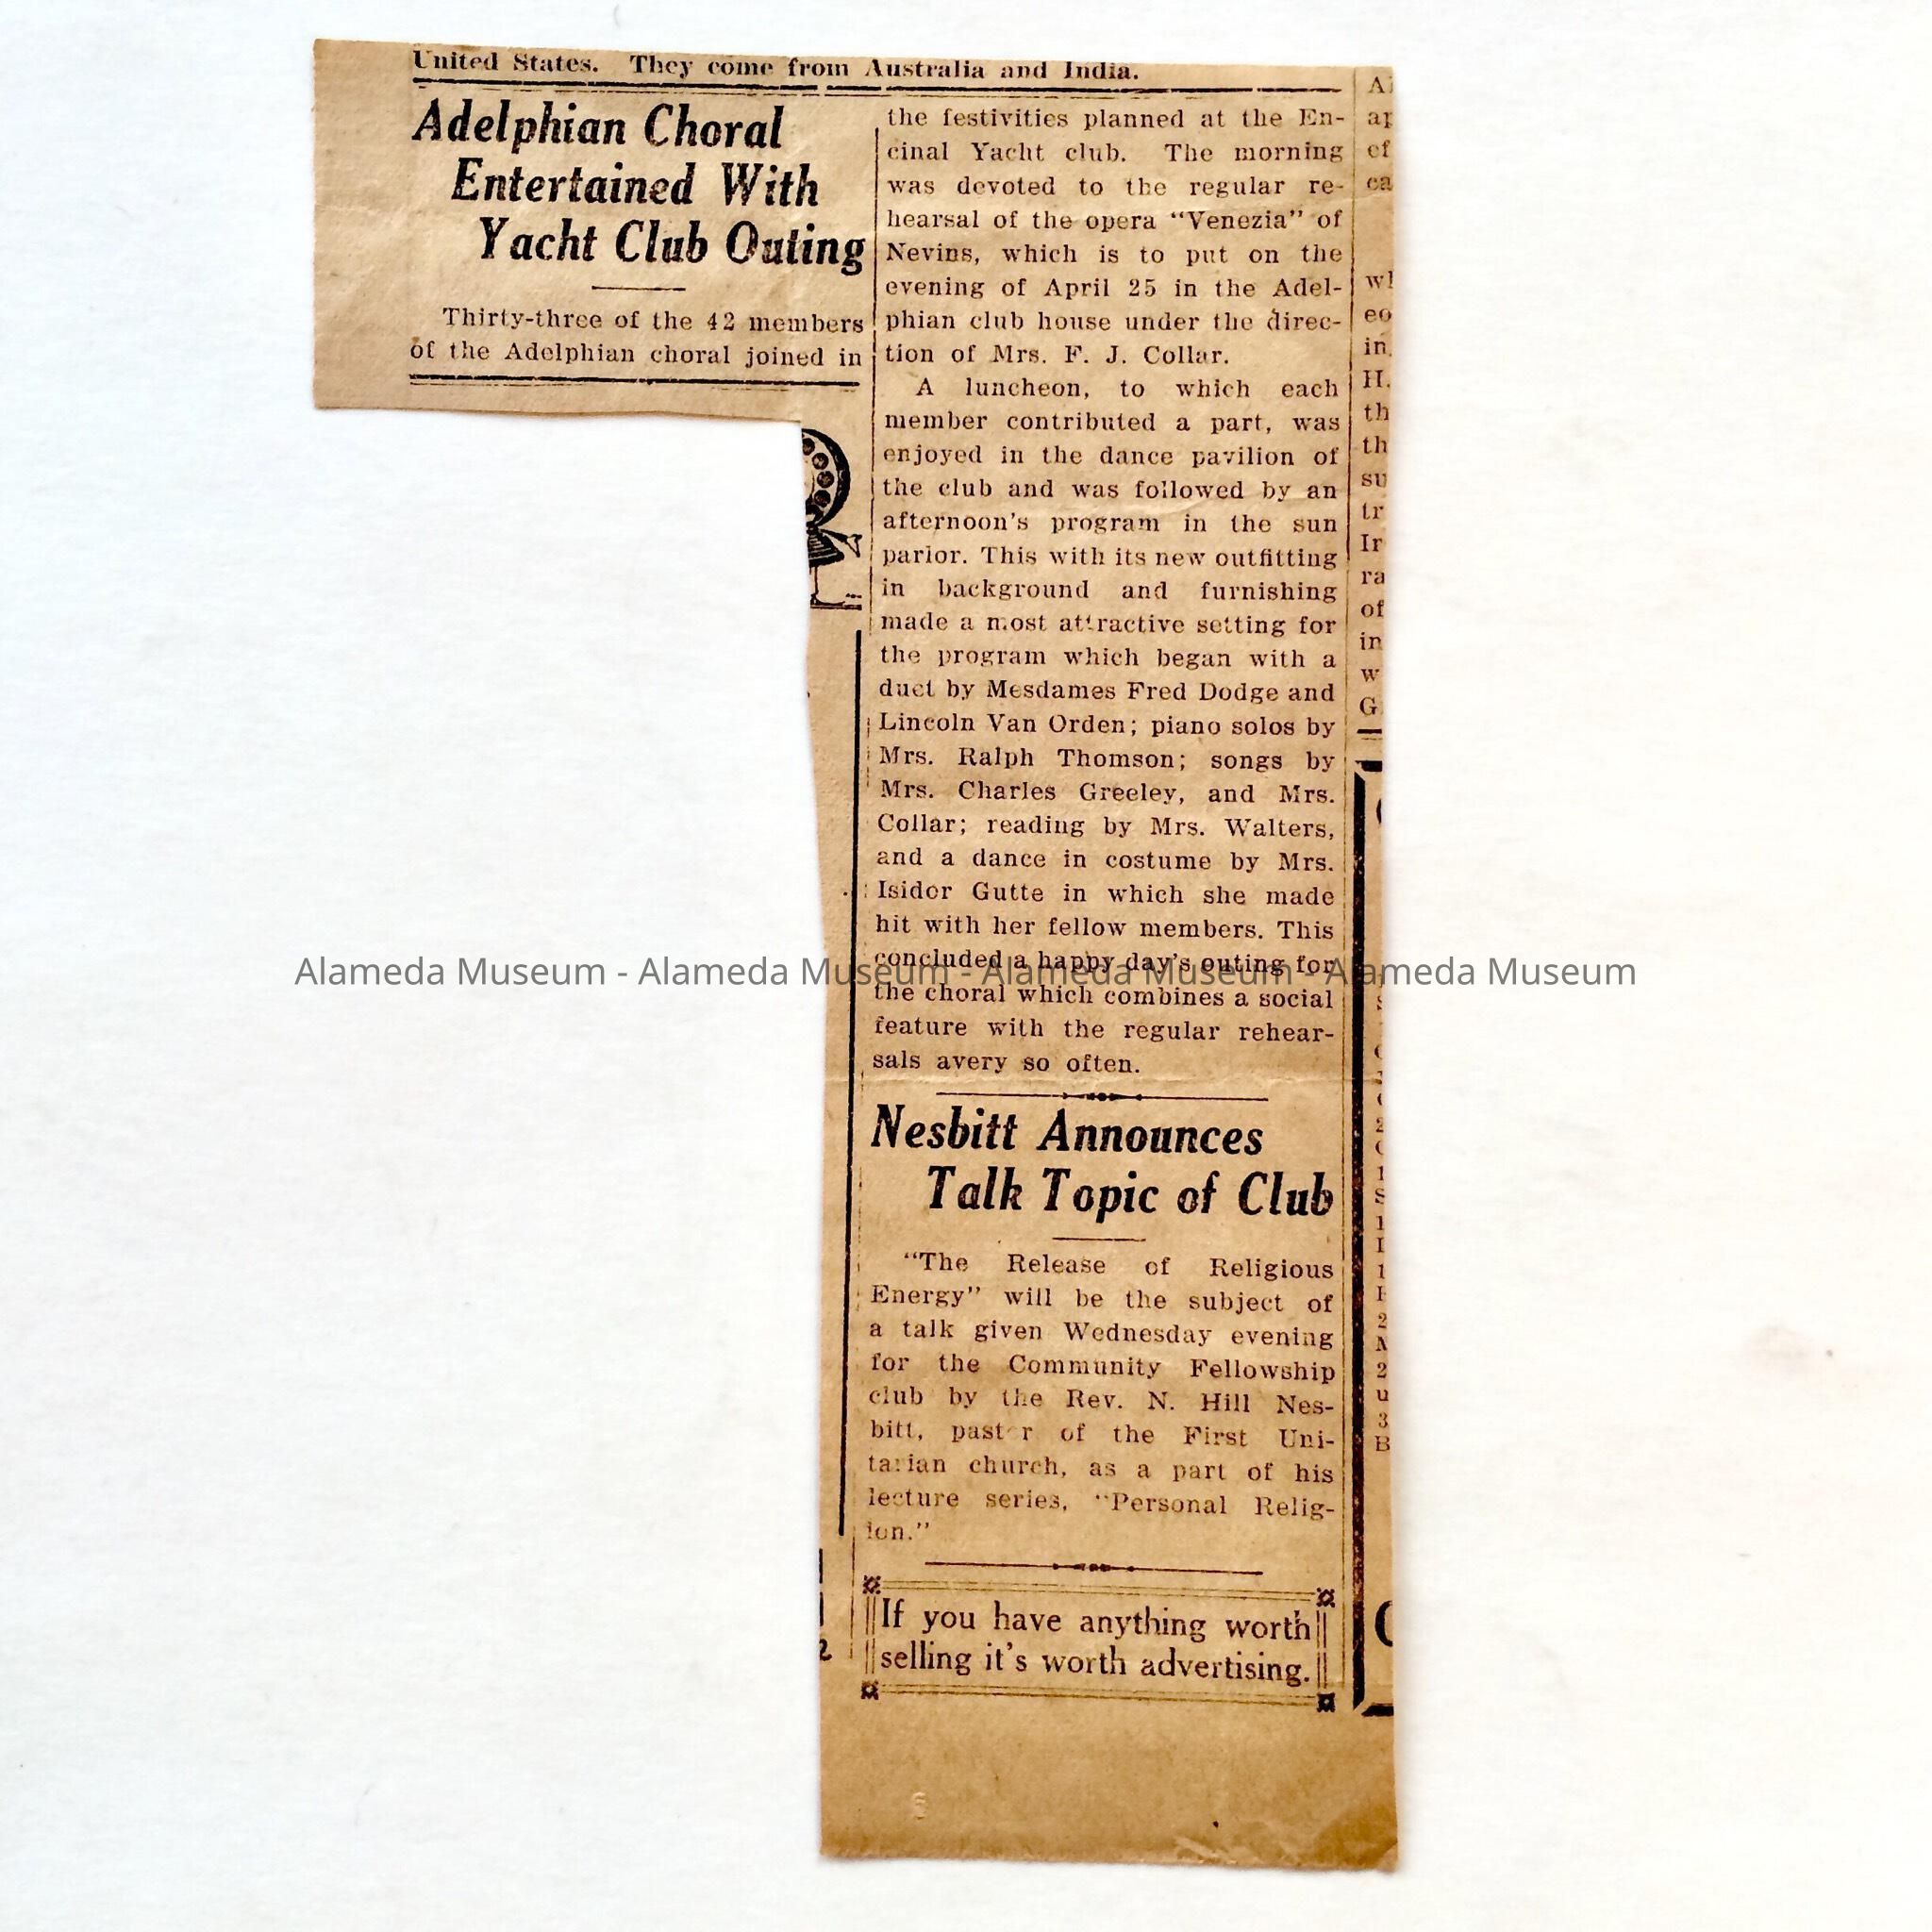 United States. They come from Australia and India.
Adelphian Choral
Entertained With
Yacht Club Outing
Thirty-three of the 42 members
of the Adelphian choral joined in
the festivities planned at the En-
cinal Yacht club. The morning
was devoted to the regular re-
hearsal of the opera “Venezia” of
Nevins, which is to put on the
evening of April 25 in the Adel-
phian club house under the direc-
tion of Mrs. F. J. Collar.
A luncheon, to which each
member contributed a part, was
enjoyed in the dance pavilion of
the club and was followed by an
afternoon's program in the sun
parlor. This with its new outfitting
in background and furnishing
made a most attractive setting for
the program which began with a
duet by Mesdames Fred Dodge and
Lincoln Van Orden; piano solos by
Mrs. Ralph Thomson; songs by
Mrs. Charles Greeley, and Mrs.
Collar; reading by Mrs. Walters,
and a dance in costume by Mrs.
Isidor Gutte in which she made
hit with her fellow members. This
concluded a happy day's outing for
the choral which combines a social
feature with the regular rehear-
sals avery so often.
Nesbitt Announces
Talk Topic of Club
“The Release of Religious
Energy” will be the subject of
a talk given Wednesday evening
for the Community Fellowship
club by the Rev. N. Hill Nes-
bitt, past r of the First Uni-
tarian church, as a part of his
lecture series, “Personal Relig-
ion.”
If you have anything worth
selling it's worth advertising.
Al
ap
ef
ca
wh
eo
in
H.
th
th
su
tr
Ir
ra
of
in
w
G
Alameda Museum - Alameda Museum - Alameda Museum - Alameda Museum